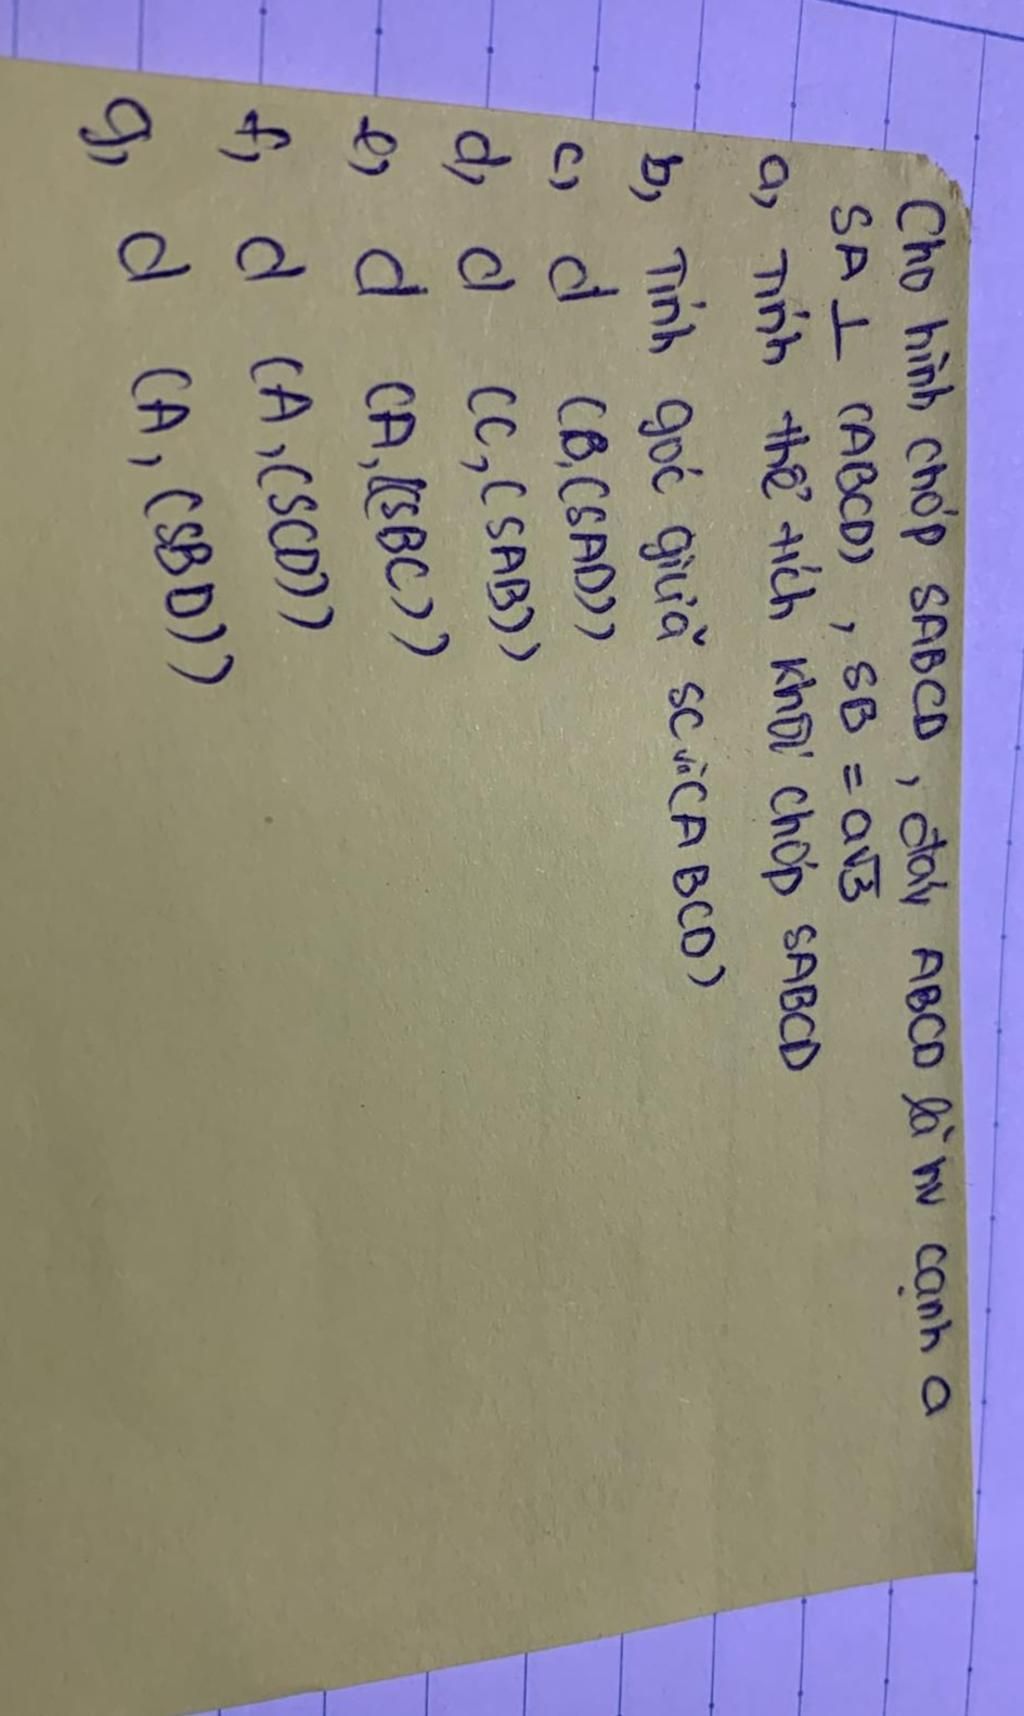 Cho hình chóp SABCD, đáy ABCD là hv cạnh a
SA ⊥ (ABCD), SB = a√3
a, Tính thể tích khối chóp SABCD
b, Tính góc giữa SC và (ABCD)
c, d (B,(SAD))
d, d (C,(SAB))
e, d (A,(SBC))
f, d (A,(SCD))
g, d (A,(SBD))